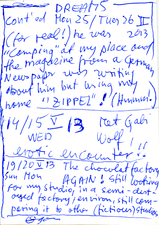 DREAMS
cont'ed Mon 25/Tues 26 II
(for real!) he was 2013
"camping" at my place and
the magazine from a German
Newspaper was writing
about him but using my
home! "ZIPPEZ"! (Hmmm!
14/15 V 13 met Gabi
WED Wolf!!
erotic encounter!!
19/20 V 13 The chocolat factory
Sun Mon AGAIN! still looking
for my studio, in a semi-dest-
oyed factory/environ, still com-
paring it to other (fictious) studios